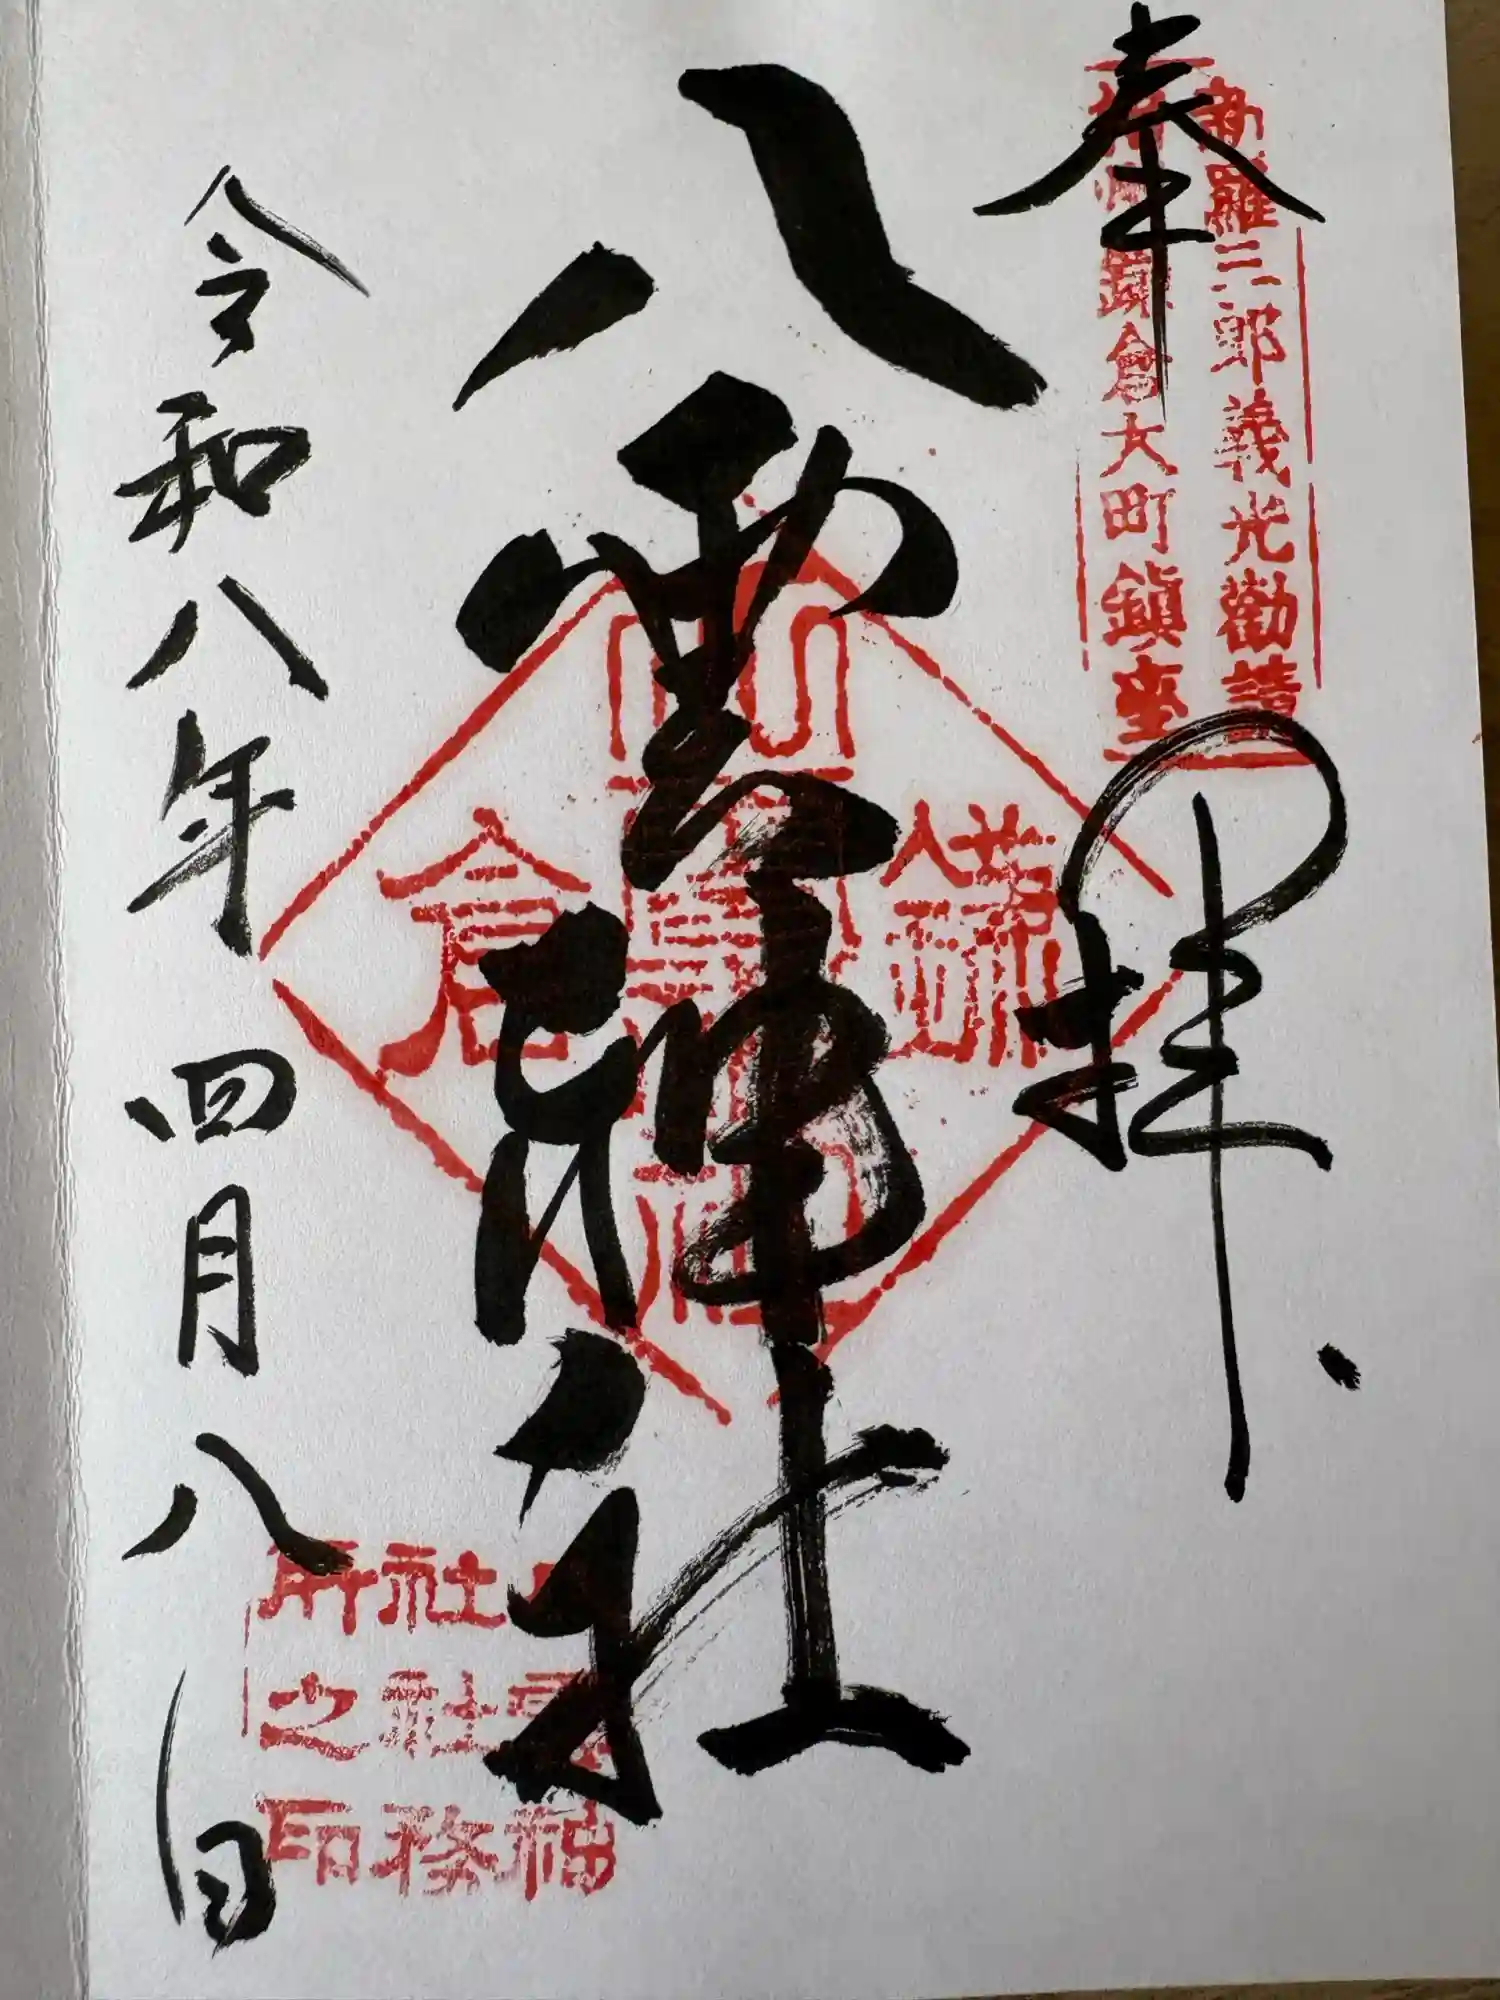 奉拝
新羅三郎義光勸請
相州鎌倉大町鎮座
八雲神社
鎌倉
八雲神社
社社務所之印
令和八年四月八日